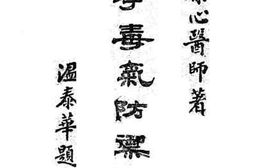 心醫師著
毒氣防禦
溫泰華題